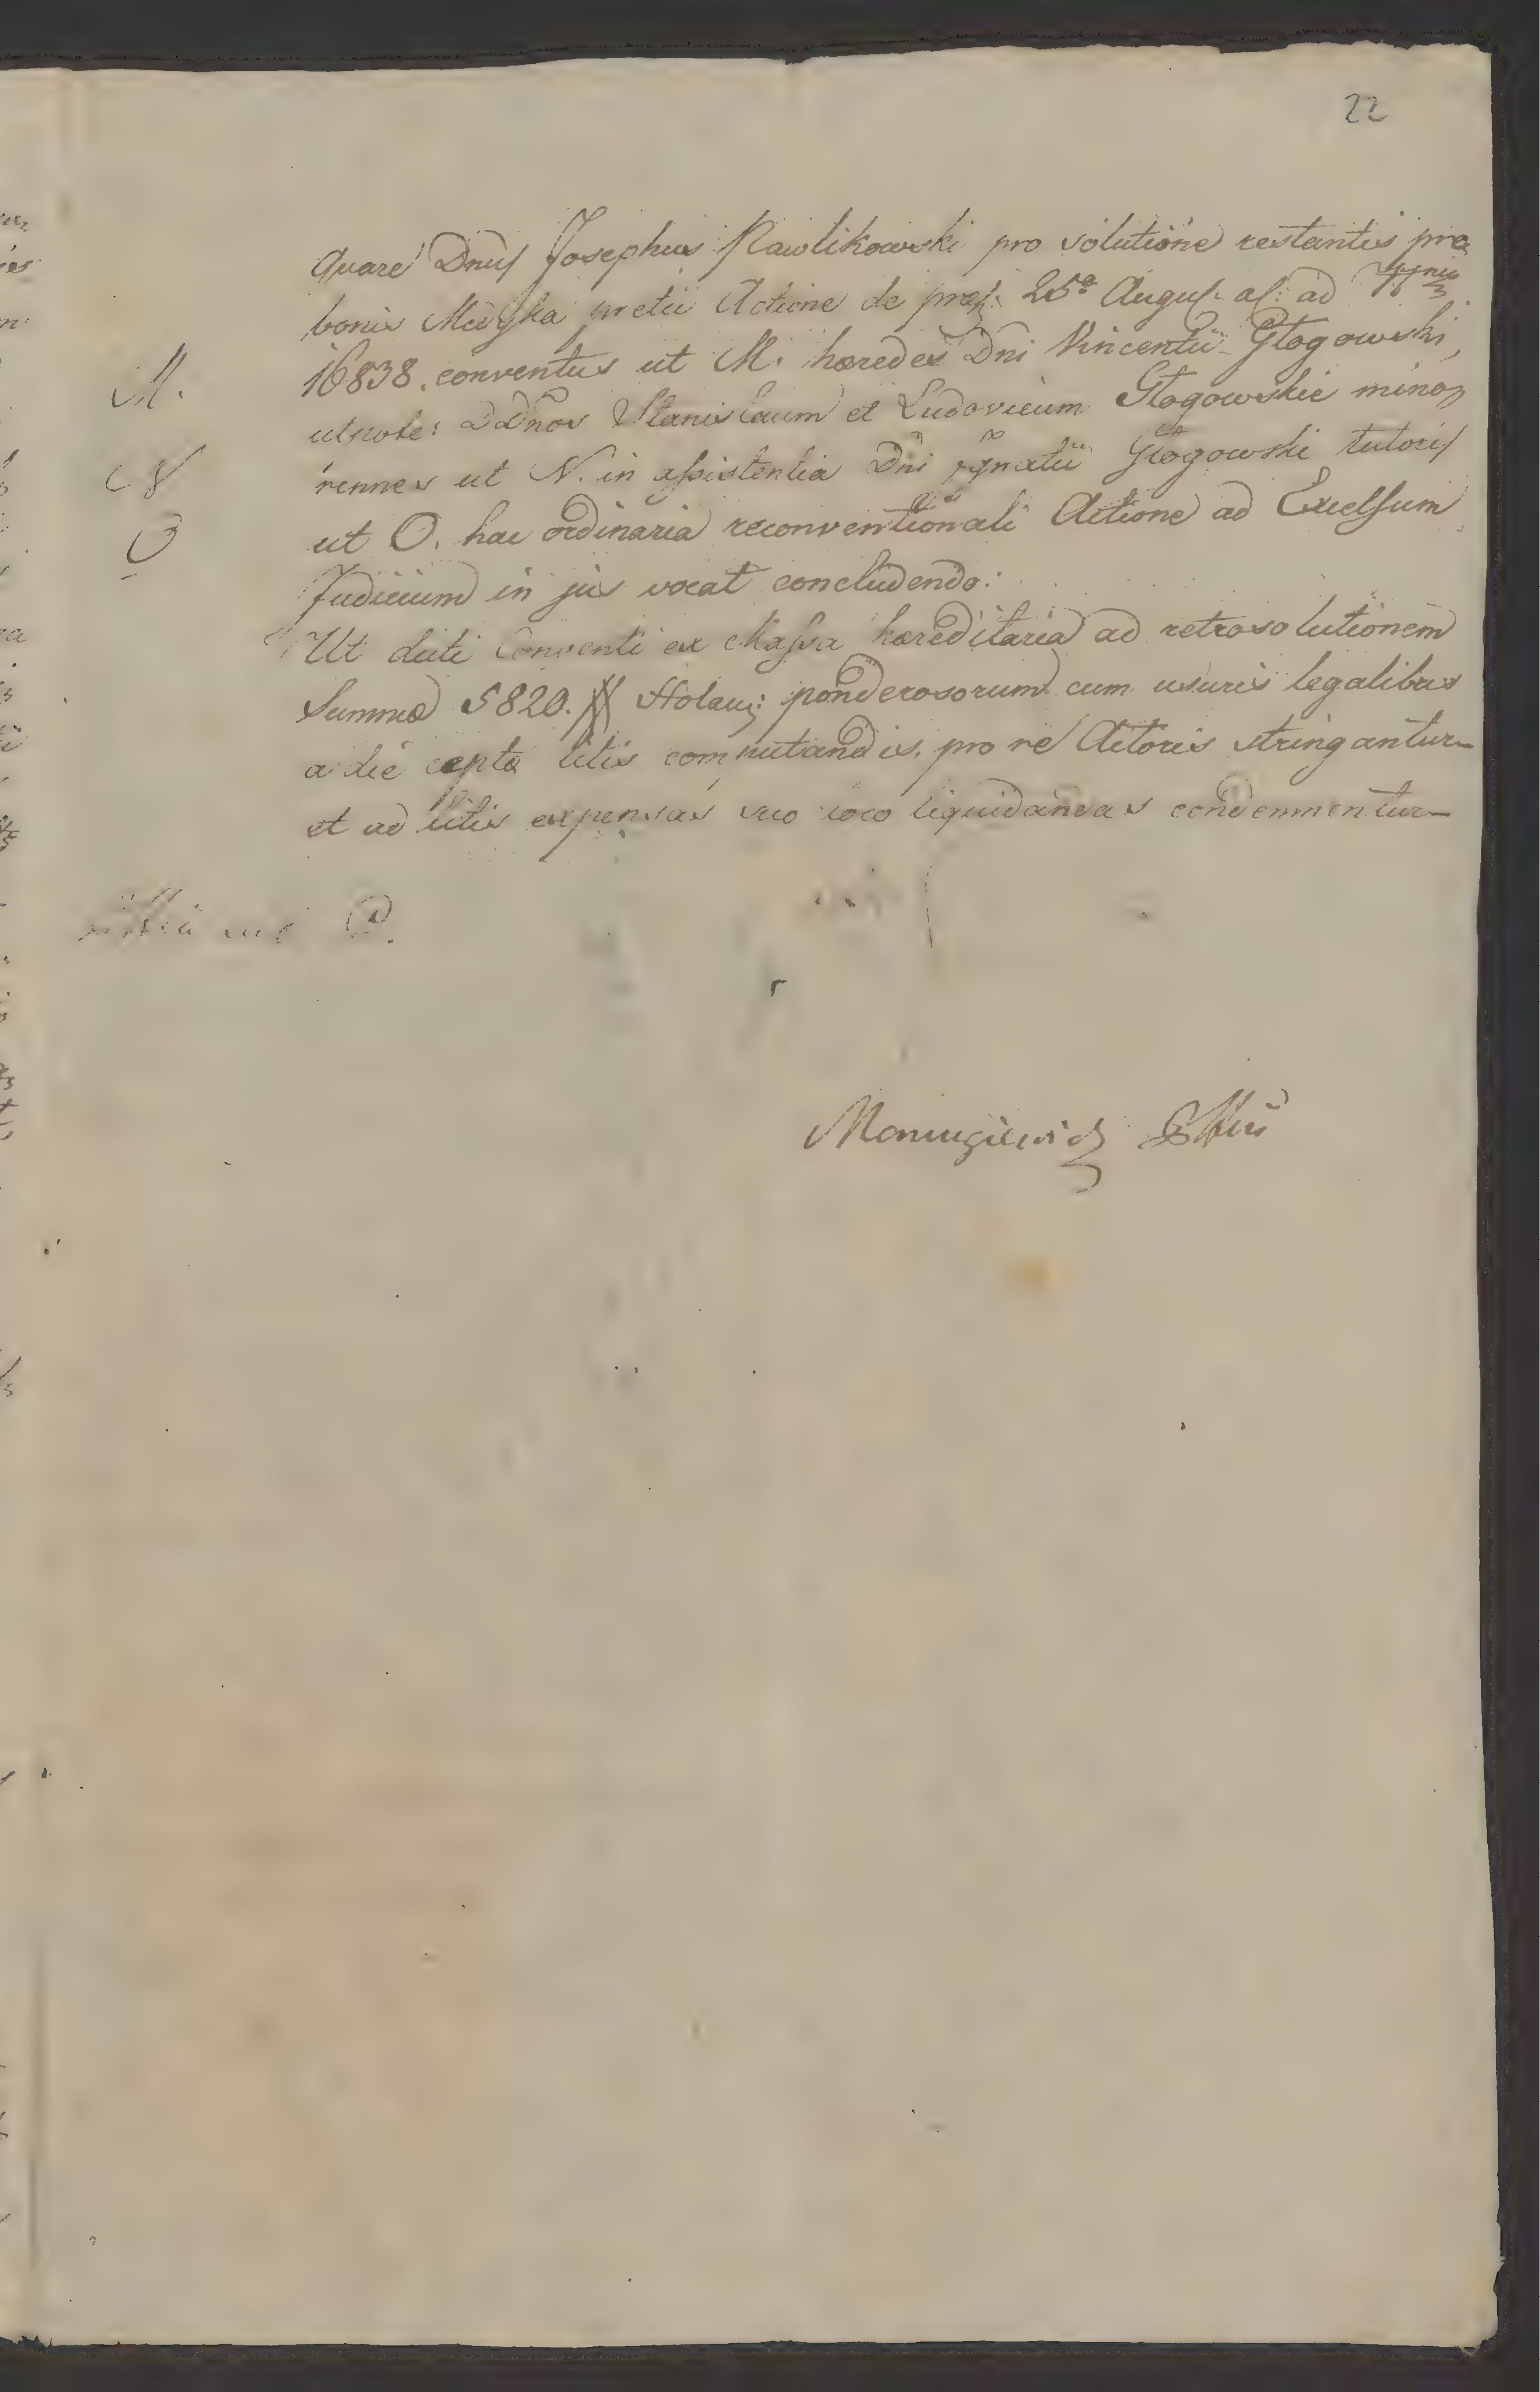 22
Quare Dnus Josephus Pawlikowski pro solutione restantis pro
bonis Medyka pretii Actione de praes: 25a Augus. a. ad Num
16838. conventus ut M. haeredes Dni Vincentii Głogowski,
M.
utpote: DDnos Stanislaum et Ludovicum Głogowskie mino,
rennes ut N. in assistentia Dni Ignatii Głogowski tutoris
N
ut O. hac ordinaria reconventionali Actione ad Excelsum
O
Judicium in jus vocat concludendo:
Ut dicti Conventi ex Massa haereditaria ad retrosolutionem
Summae 5820. # Holan: ponderosorum cum usuris legalibus
a die cepta litis computandis, pro re Actoris stringantur
et ad litis expensas suo loco liquidandas condemnentur